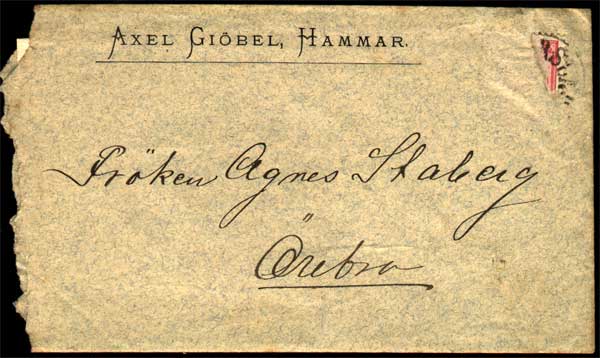 AXEL GIÖBEL, HAMMAR.
Fröken Agnes Staberg
Örebro